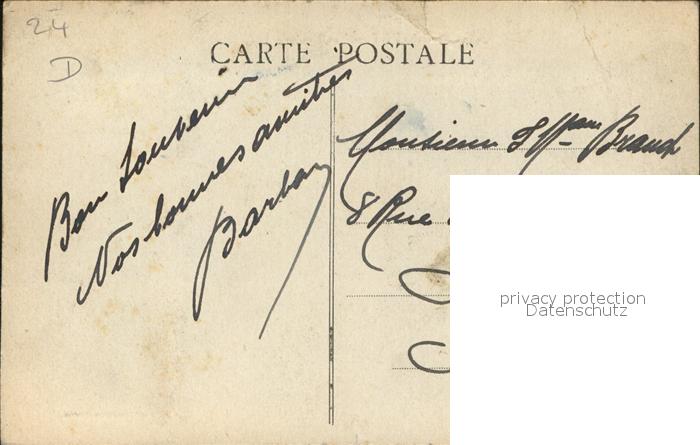 24
D
CARTE POSTALE
Bon Souvenir
Nos bonnes amitiés
Barbary
Monsieur & Mme Brauch
8 Rue
privacy protection
Datenschutz